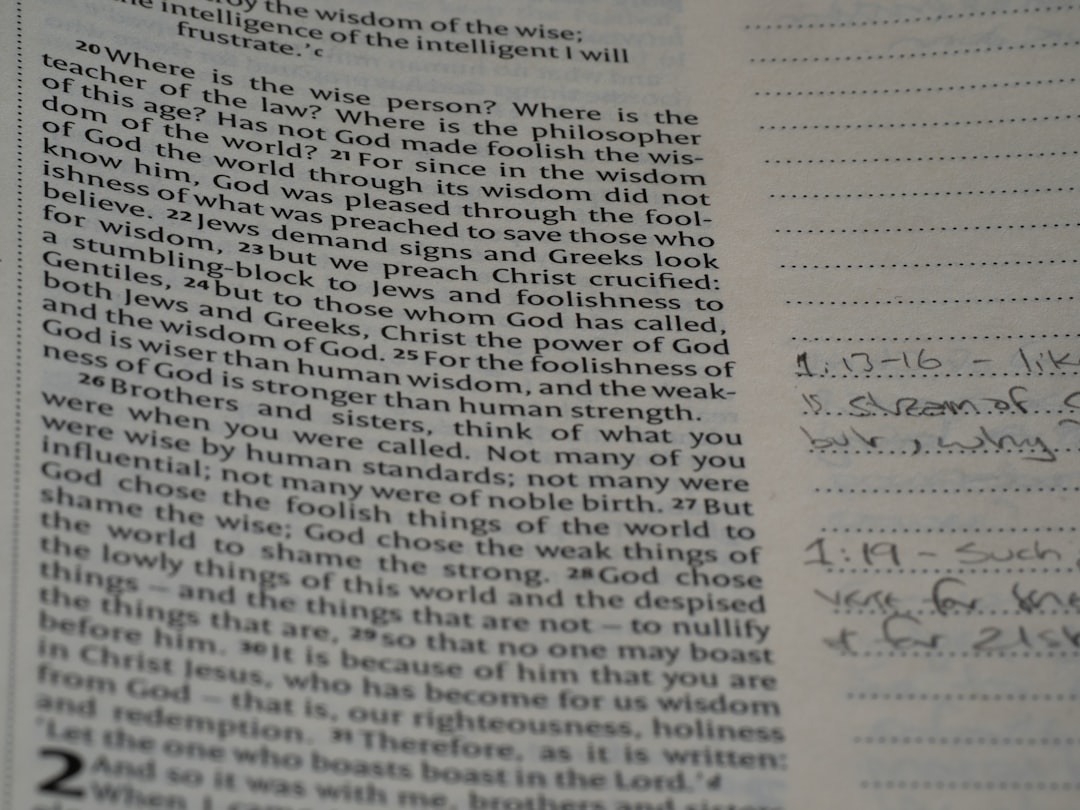 the wisdom of the wise;
intelligence of the intelligent I will
frustrate.’c
20 Where is the wise person? Where is the
teacher of the law? Where is the philosopher
of this age? Has not God made foolish the wis-
dom of the world? 21 For since in the wisdom
of God the world through its wisdom did not
know him, God was pleased through the fool-
ishness of what was preached to save those who
believe. 22 Jews demand signs and Greeks look
for wisdom, 23 but we preach Christ crucified:
a stumbling-block to Jews and foolishness to
Gentiles, 24 but to those whom God has called,
both Jews and Greeks, Christ the power of God
and the wisdom of God. 25 For the foolishness of
God is wiser than human wisdom, and the weak-
ness of God is stronger than human strength.
26 Brothers and sisters, think of what you
were when you were called. Not many of you
were wise by human standards; not many were
influential; not many were of noble birth. 27 But
God chose the foolish things of the world to
shame the wise; God chose the weak things of
the world to shame the strong. 28 God chose
the lowly things of this world and the despised
things – and the things that are not – to nullify
the things that are, 29 so that no one may boast
before him. 30 It is because of him that you are
in Christ Jesus, who has become for us wisdom
from God – that is, our righteousness, holiness
and redemption. 31 Therefore, as it is written:
‘Let the one who boasts boast in the Lord.’d
2 And so it was with me, brothers and sisters
When I
1:13-16 - lik
is stream of
but, why?
1:19 - such
verse for
+ for 21st